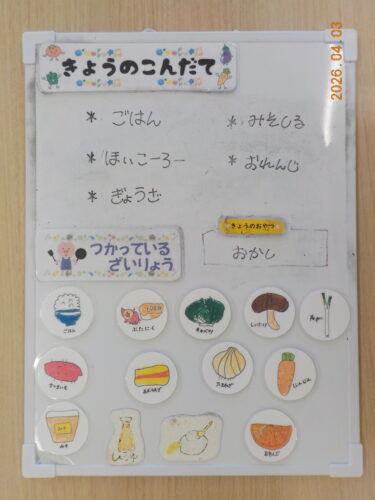 きょうのこんだて
2026.04.03
* ごはん
* みそしる
* ほいこーろー
* おれんじ
* ぎょうざ
きょうのおやつ
つかっている
ざいりょう
おかし
ごはん
ぶたにく
きゃべつ
しいたけ
ねぎ
さつまいも
あぶらあげ
たまねぎ
にんじん
みそ
みそ
しょうゆ
おれんじ